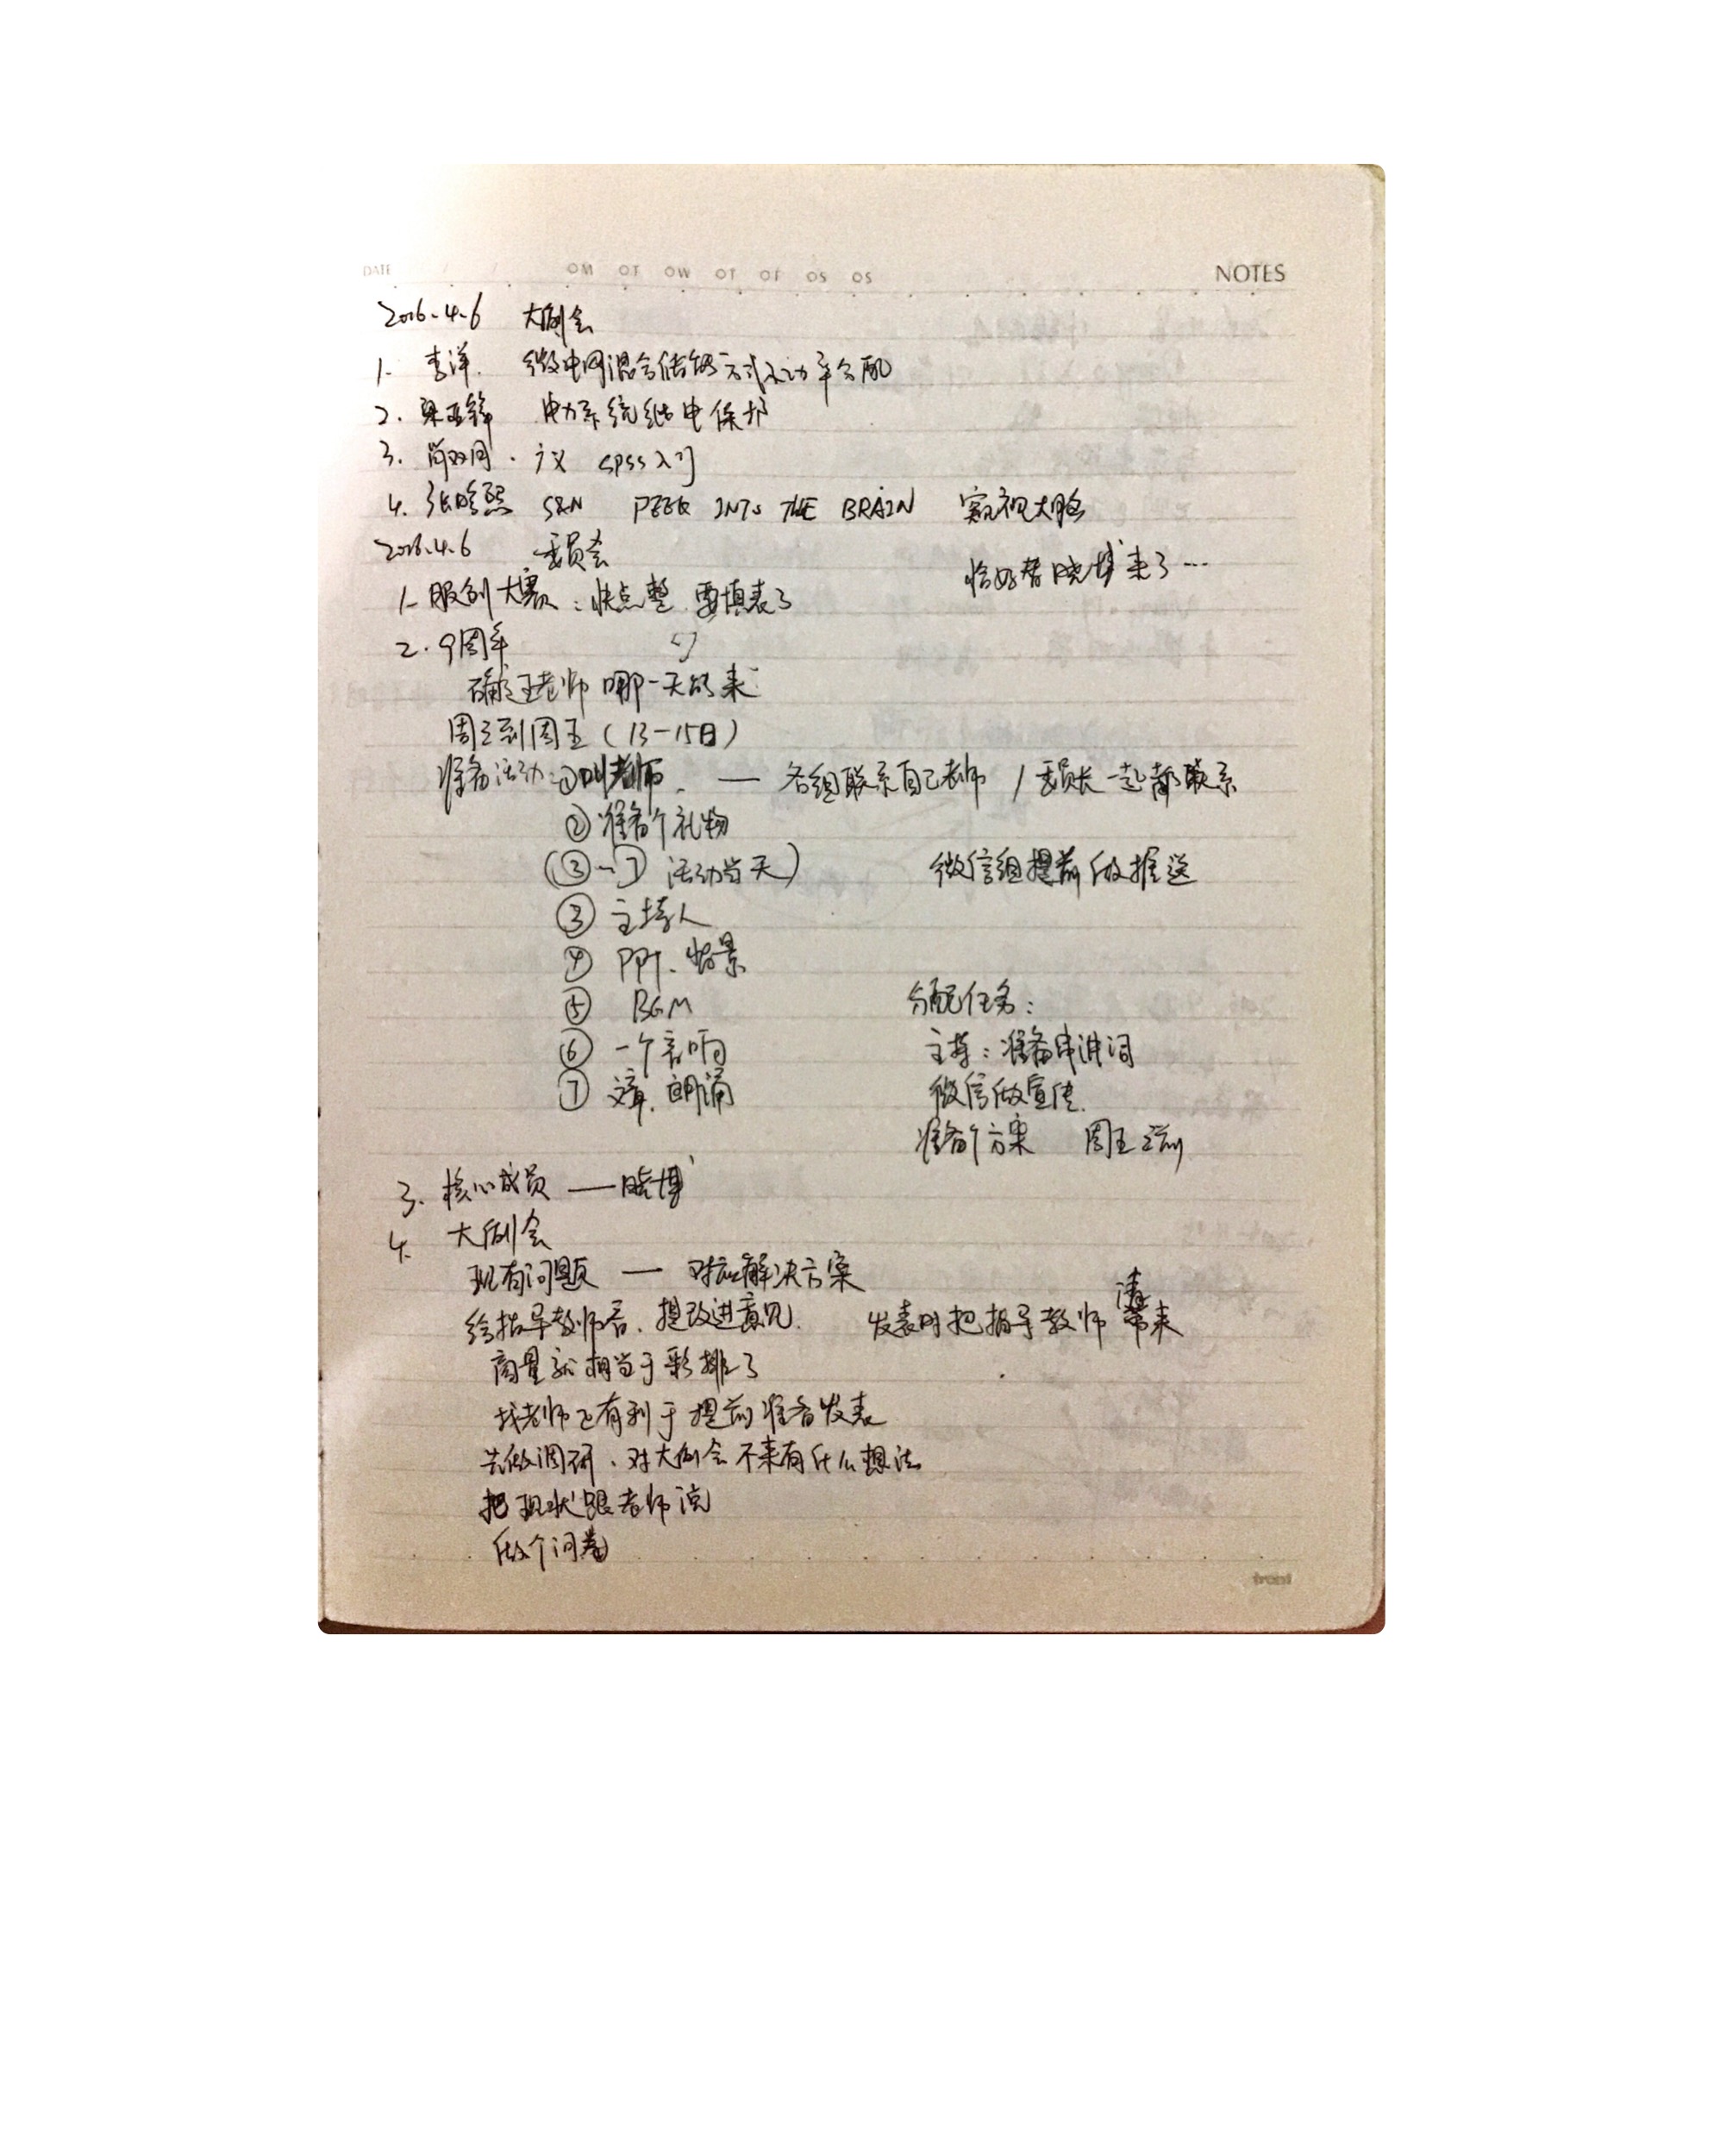 DATE / / OM OT OW OT OF OS OS NOTES
2016.4.6 大例会
1. 李洋. 微电网混合储能方式及功率分配
2. 梁亚锋 电力系统继电保护
3. SPSS入门
4. 张晗熙 S&N PEEK INTO THE BRAIN 窥视大脑
2016.4.6 委员会
恰好替晓博来了…
1. 服创大赛：快点整 要填表了
2. 9周年
确定王老师哪一天的来
周三到周五（13-15日）
准备活动：①叫老师. — 各组联系自己老师 / 委员长一起都联系
②准备个礼物
(③~⑦ 活动当天) 微信组提前做推送
③ 主持人
④ PPT、背景
⑤ BGM 分配任务：
⑥ 一个音响 主持：准备串讲词
⑦ 文章、朗诵 微信做宣传.
准备个方案 周五之前
3. 核心成员 ——晓博
4. 大例会
现有问题 — 对应解决方案
给指导教师看、提改进意见. 发表时把指导教师请带来
商量就相当于彩排了
找老师也有利于提前准备发表
先做调研、对大例会不来有什么想法
把现状跟老师说
做个问卷
front